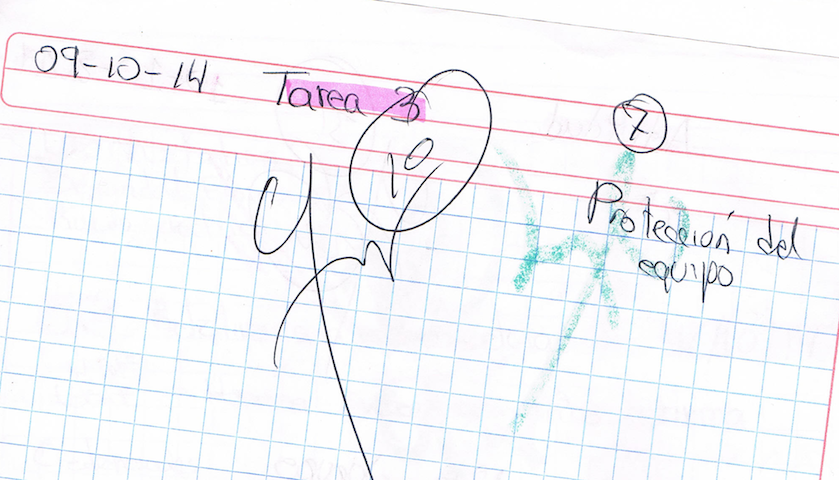 09-10-14 Tarea 3
7
10
Protección del
equipo